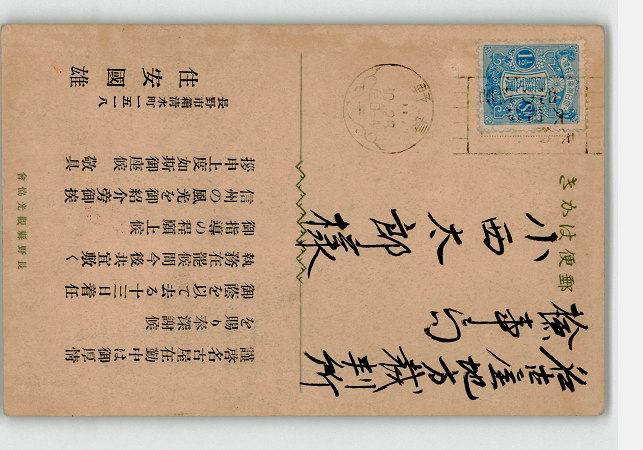 郵便はかき
名古屋地方裁判所
検事局
小西太郎様
謹啓名古屋在勤中は御厚情
を賜り奉深謝候
御蔭を以て去る十三日着任
執務在罷候間今後共宜敷く
御指導の程願上候
信州の風光を御紹介旁御挨
拶申上度如斯御座候 敬具
長野市箱清水町一五一八
住安國雄
長野縣觀光協會
1½